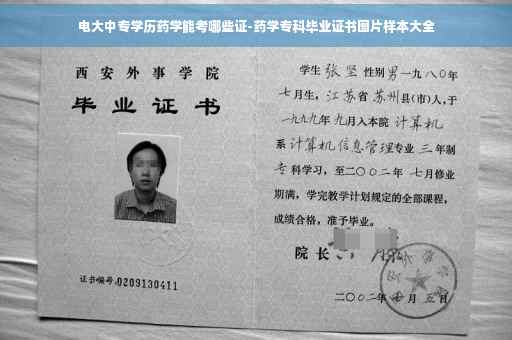 电大中专学历药学能考哪些证-药学专科毕业证书图片样本大全
西安外事学院
毕业证书
证书编号:0209130411
学生 张坚 性别 男 一九八〇年
七月生，江苏省 苏州县(市)人,于
一九九九年 九月入本院 计算机
系 计算机信息管理专业 三 年制
专 科学习，至二〇〇二年 七月修业
期满，学完教学计划规定的全部课程，
成绩合格，准予毕业。
院 长
二〇〇二年 七 月 五 日